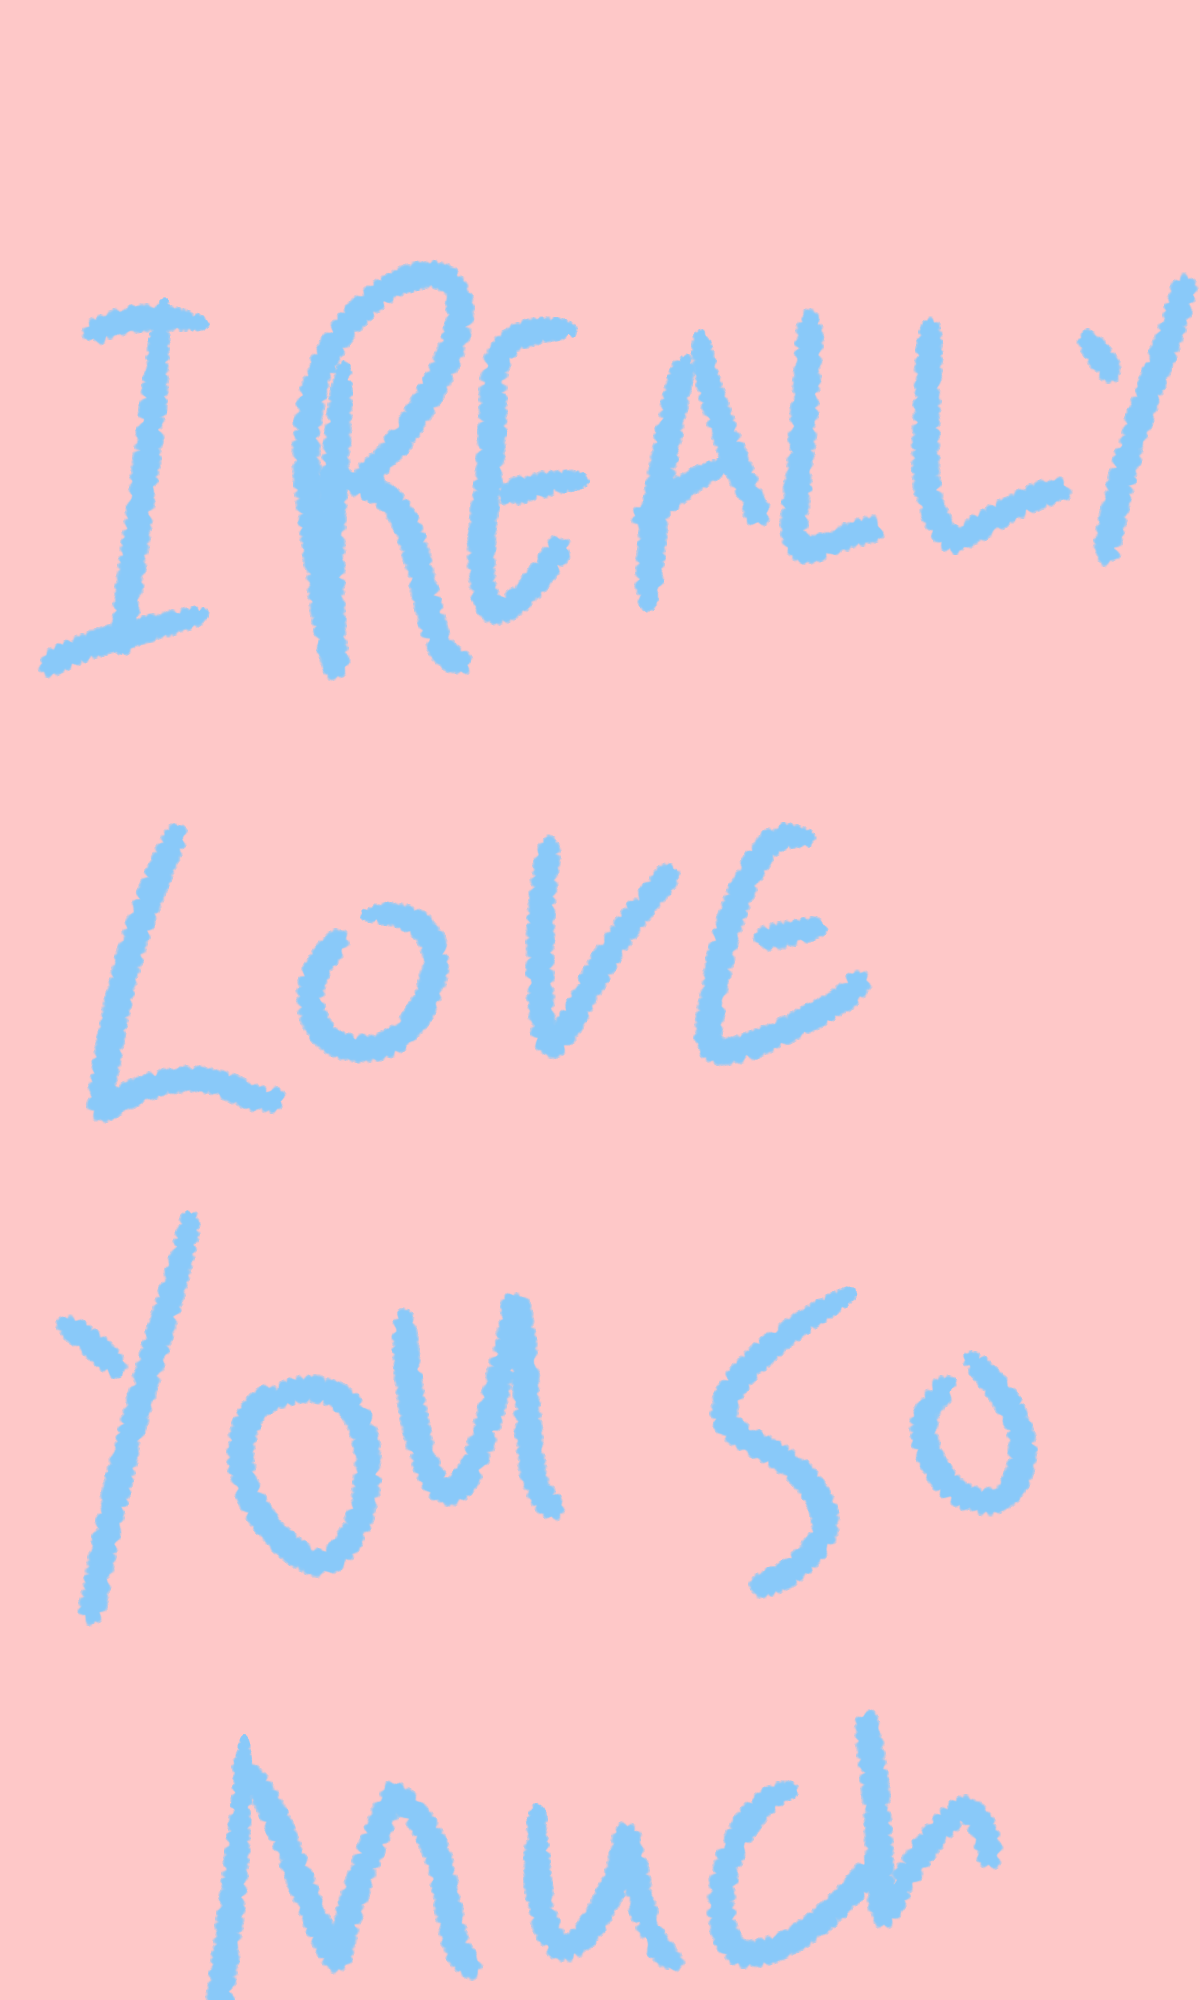 I REALLY
LOVE
YOU SO
Much